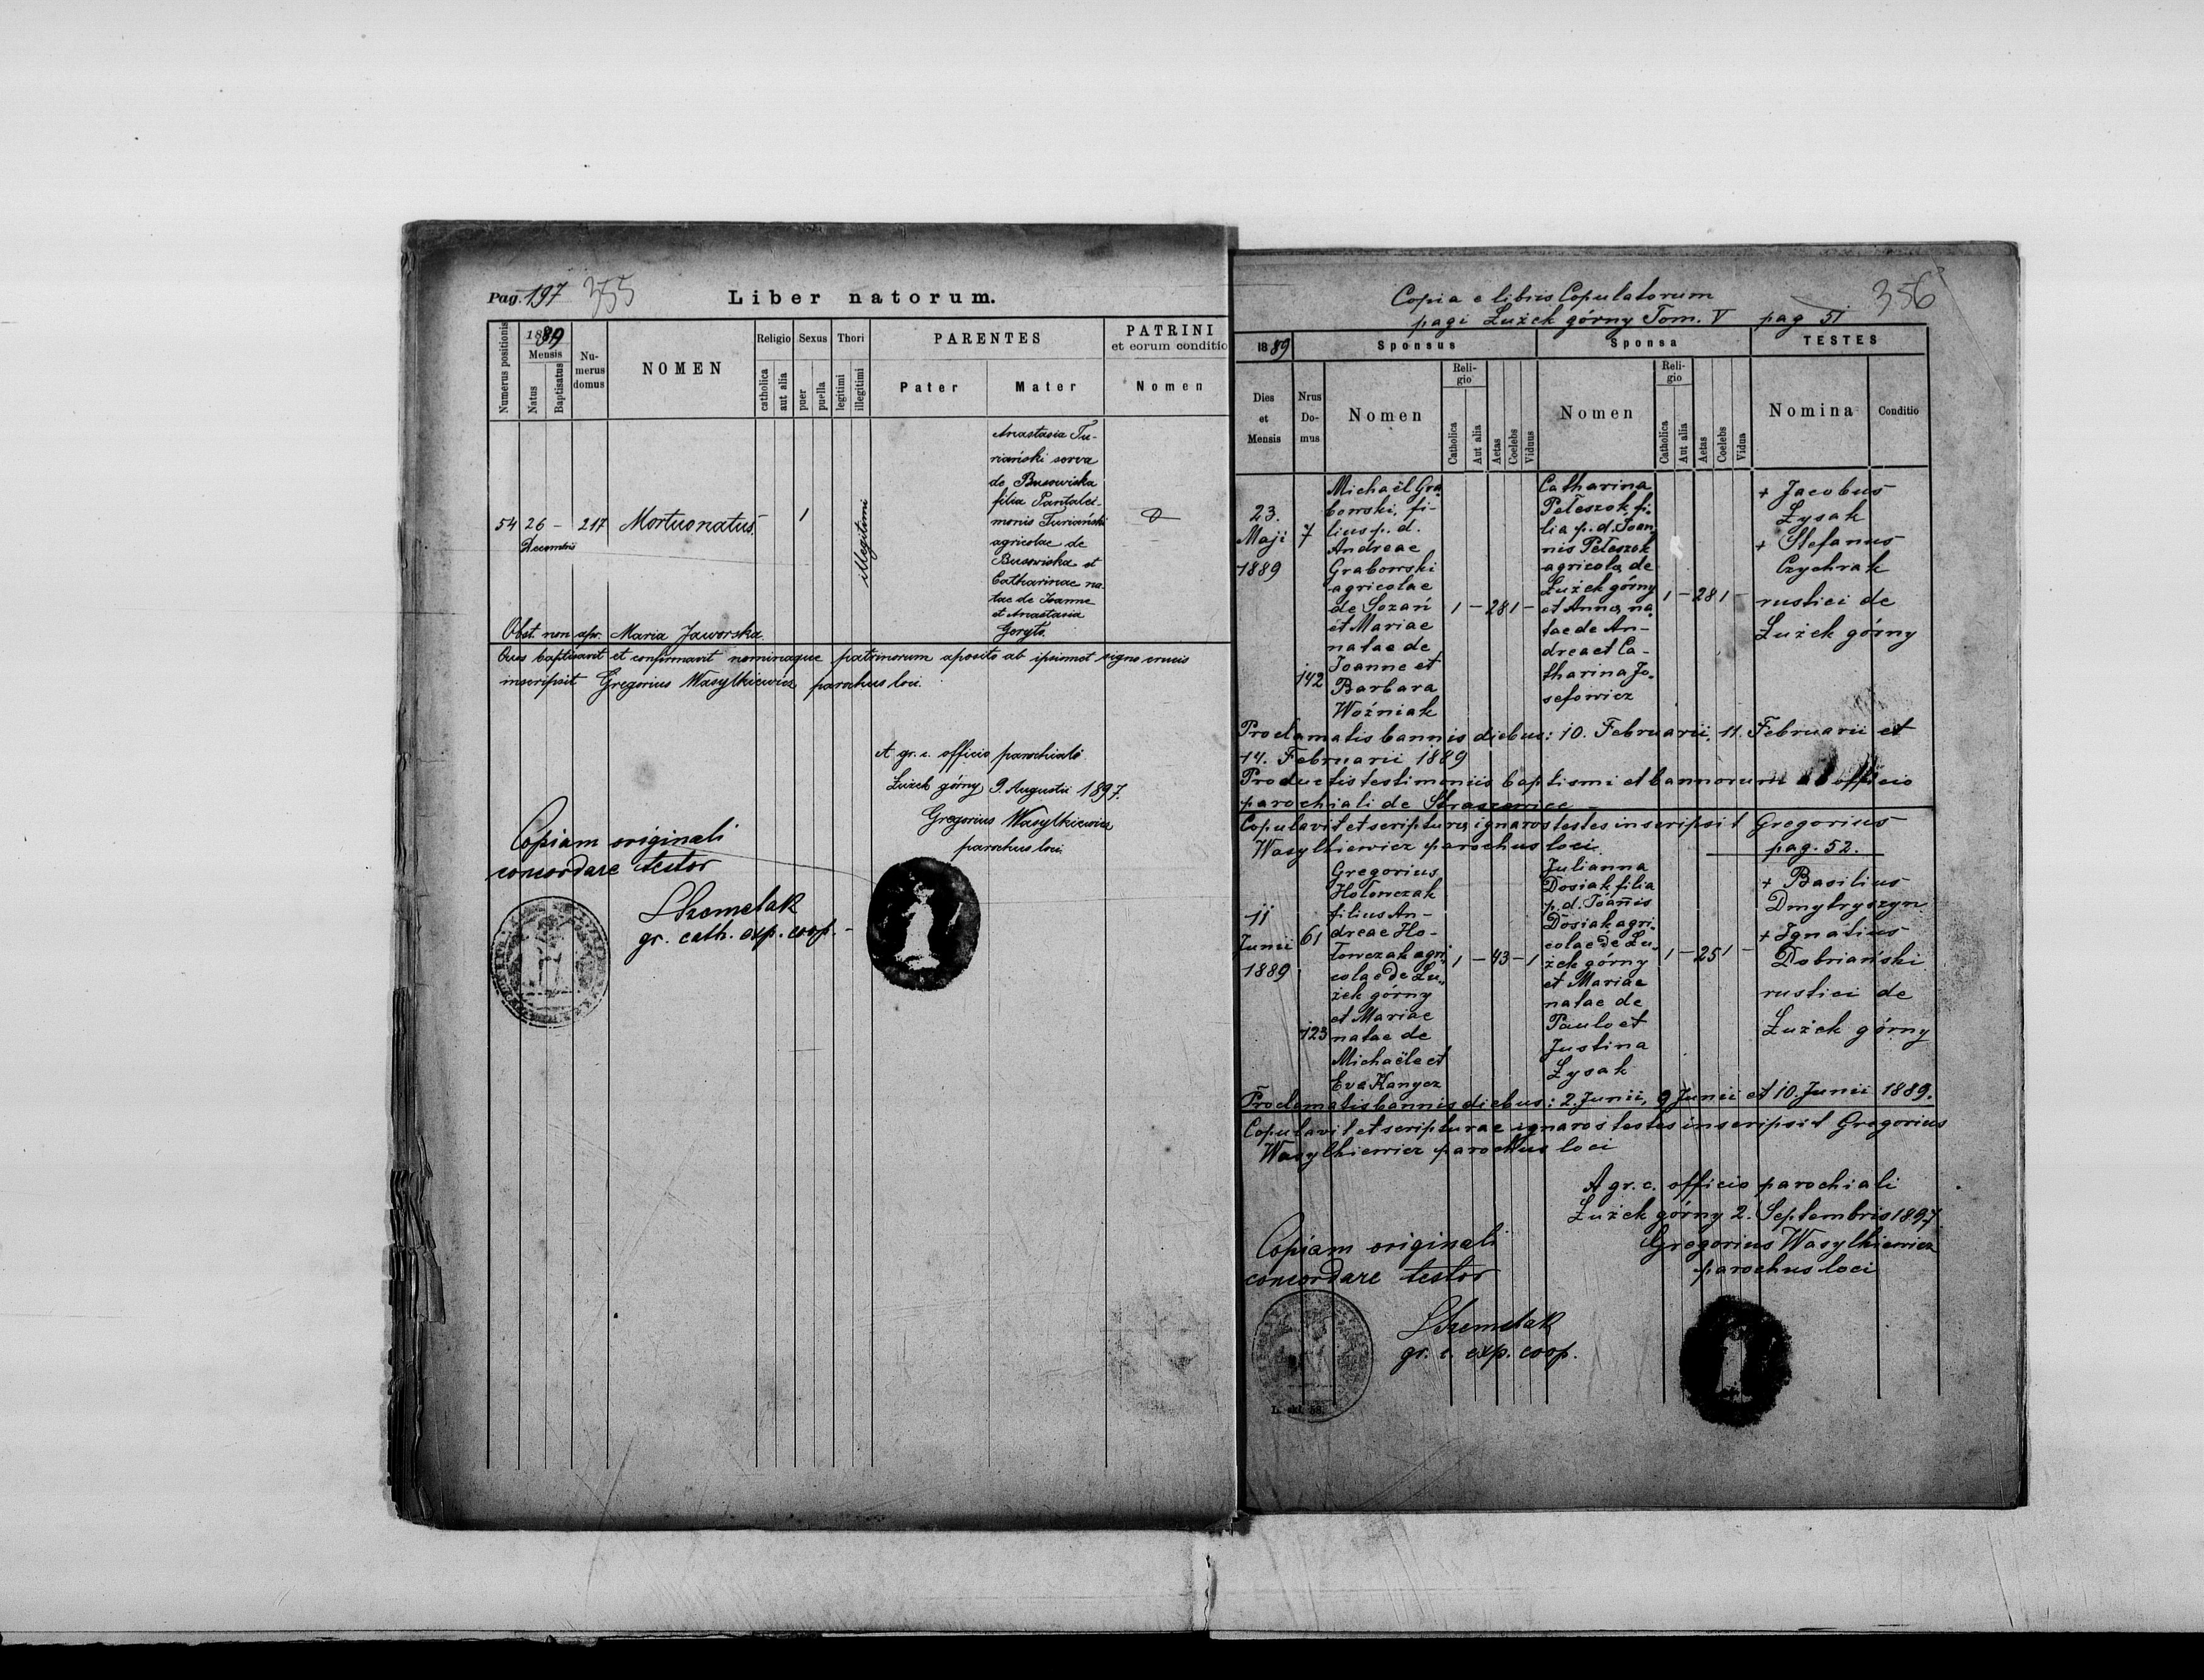 Pag. 197 355
Liber natorum.
Numerus positionis
1889
Mensis
Natus
Baptisatus
Nu-
merus
domus
NOMEN
Religio
catholica
aut alia
Sexus
puer
puella
Thori
legitimi
illegitimi
PARENTES
Pater
Mater
PATRINI
et eorum conditio
Nomen
54 26 – 217 Mortuonatus 1 illegitimi
Decembris
Anastasia Tu-
riański serva
de Busowiska
filia Pantalei-
monis Turiański
agricolae de
Busowiska et
Catharinae na-
tae de Joanne
et Anastasia
Goryto.
Obst. non apr. Maria Jaworska
Quos baptisavit et confirmavit nominaque patrinorum aposito ab ipsimet signo crucis
inscripsit Gregorius Wasylkiewicz parochus loci.
A gr. c. officio parochiali
Łużek górny 9. Augusti 1897.
Gregorius Wasylkiewicz
parochus loci.
Copiam originali
concordare testor
gr. cath. exp. coop.
356
Copia e libris Copulatorum
pagi Łużek górny Tom. V pag 51
1889
Sponsus
Sponsa
TESTES
Dies
et
Mensis
Nrus
Do-
mus
Nomen
Reli-
gio
Catholica
Aut alia
Aetas
Coelebs
Viduus
Nomen
Reli-
gio
Catholica
Aut alia
Aetas
Coelebs
Vidua
Nomina
Conditio
23.
Maji
1889
7
142
Michaël Gra-
bowski, fi-
lius p. d.
Andreae
Grabowski
agricolae
de Sozań
et Mariae
natae de
Joanne et
Barbara
Woźniak
1 – 28 1 –
Catharina
Peteszok, fi-
lia p. d. Joan-
nis Peteszok
agricolae de
Łużek górny
et Annae na-
tae de An-
drea et Ca-
tharina Jo-
sefowicz
1 – 28 1 –
+ Jacobus
Łysak
+ Stefanus
Czychrak
rustici de
Łużek górny
Proclamatis bannis diebus: 10. Februarii, 11. Februarii et
14. Februarii 1889
Productis testimoniis baptismi et bannorum ab officio
parochiali de Straszewice
Copulavit et scripturae ignaros testes inscripsit Gregorius
Wasylkiewicz parochus loci.
pag. 52.
11
Junii
1889
61
123
Gregorius
Hołowczak
filius An-
dreae Ho-
łowczak agri-
colae de Łu-
żek górny
et Mariae
natae de
Michaële et
Eva Kanycz
1 – 43 – 1
Julianna
Dosiak filia
p. d. Joannis
Dosiak agri-
colae de Łu-
żek górny
et Mariae
natae de
Paulo et
Justina
Łysak
1 – 25 1 –
+ Basilius
Dmytryszyn
+ Ignatius
Dobriański
rustici de
Łużek górny
Proclamatis bannis diebus: 2. Junii, 9 Junii et 10. Junii 1889.
Copulavit et scripturae ignaros testes inscripsit Gregorius
Wasylkiewicz parochus loci
A gr. c. officio parochiali
Łużek górny 2. Septembris 1897
Gregorius Wasylkiewicz
parochus loci
Copiam originali
concordare testor
gr. c. exp. coop.